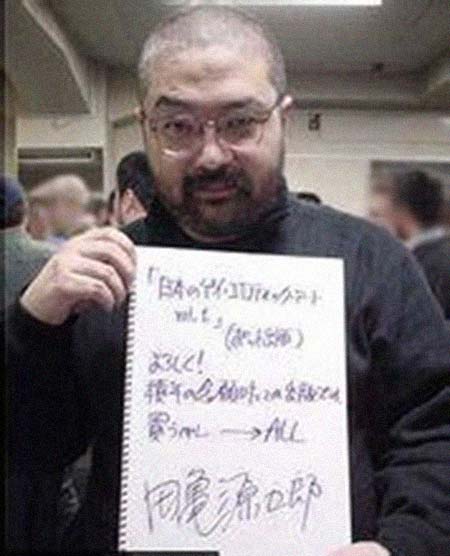 「日本のゲイ・エロティック・アート
vol.1」
(ポット出版)
よろしく!
積年の念願叶っての出版です
買うべし → ALL
田亀源五郎